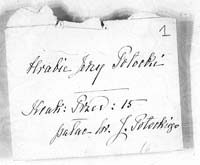 1
Hrabia Jerzy Potocki
Krak: Przed: 15
pałac hr. J. Potockiego